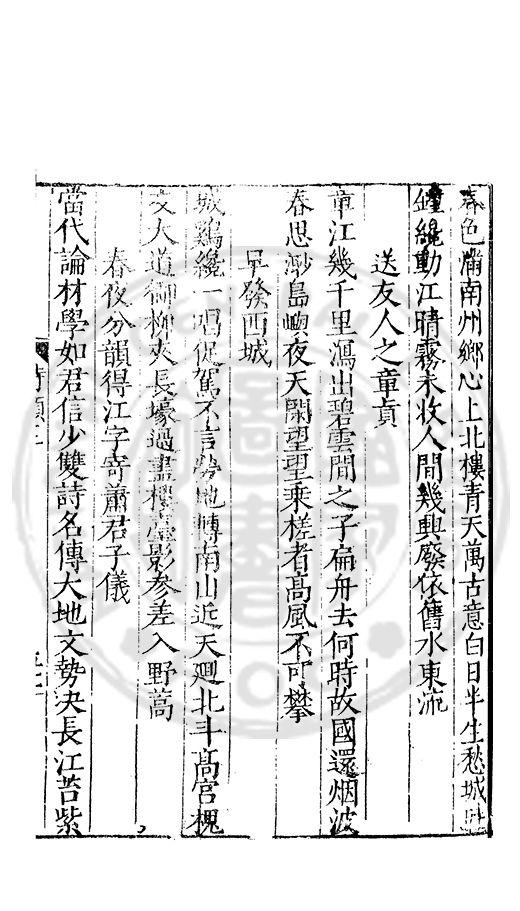 春色滿南州鄉心上北樓青天萬古意白日半生愁城
鐘纔動江晴霧未收人間幾興廢依舊水東流
送友人之章貢
章江幾千里瀉出碧雲間之子扁舟去何時故國還烟波
春思渺島嶼夜天閑望望乘槎者高風不可攀
早發西城
城鷄纔一唱促駕不言勞地轉南山近天廻北斗高宮槐
交大道御柳夾長壕過盡樓臺影參差入野蒿
春夜分韻得江字寄蕭君子儀
當代論材學如君信少雙詩名傳大地文勢決長江苔紫